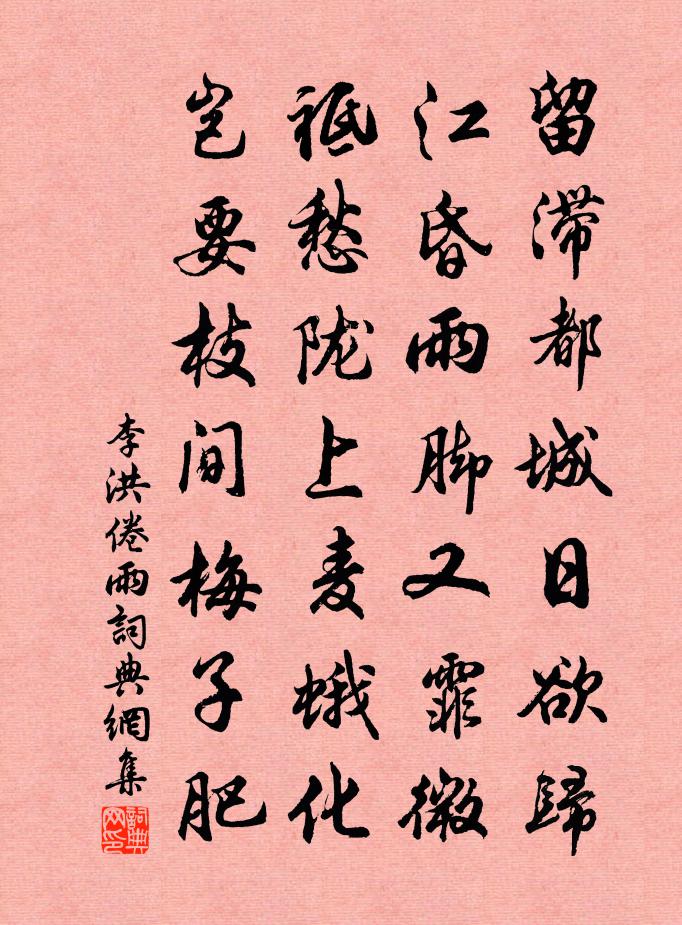 留滞都城日欲歸
江昏雨脚又霏微
祗愁陇上麦蛾化
岂要枝间梅子肥
李洪倦雨詞典網集
詞典网印